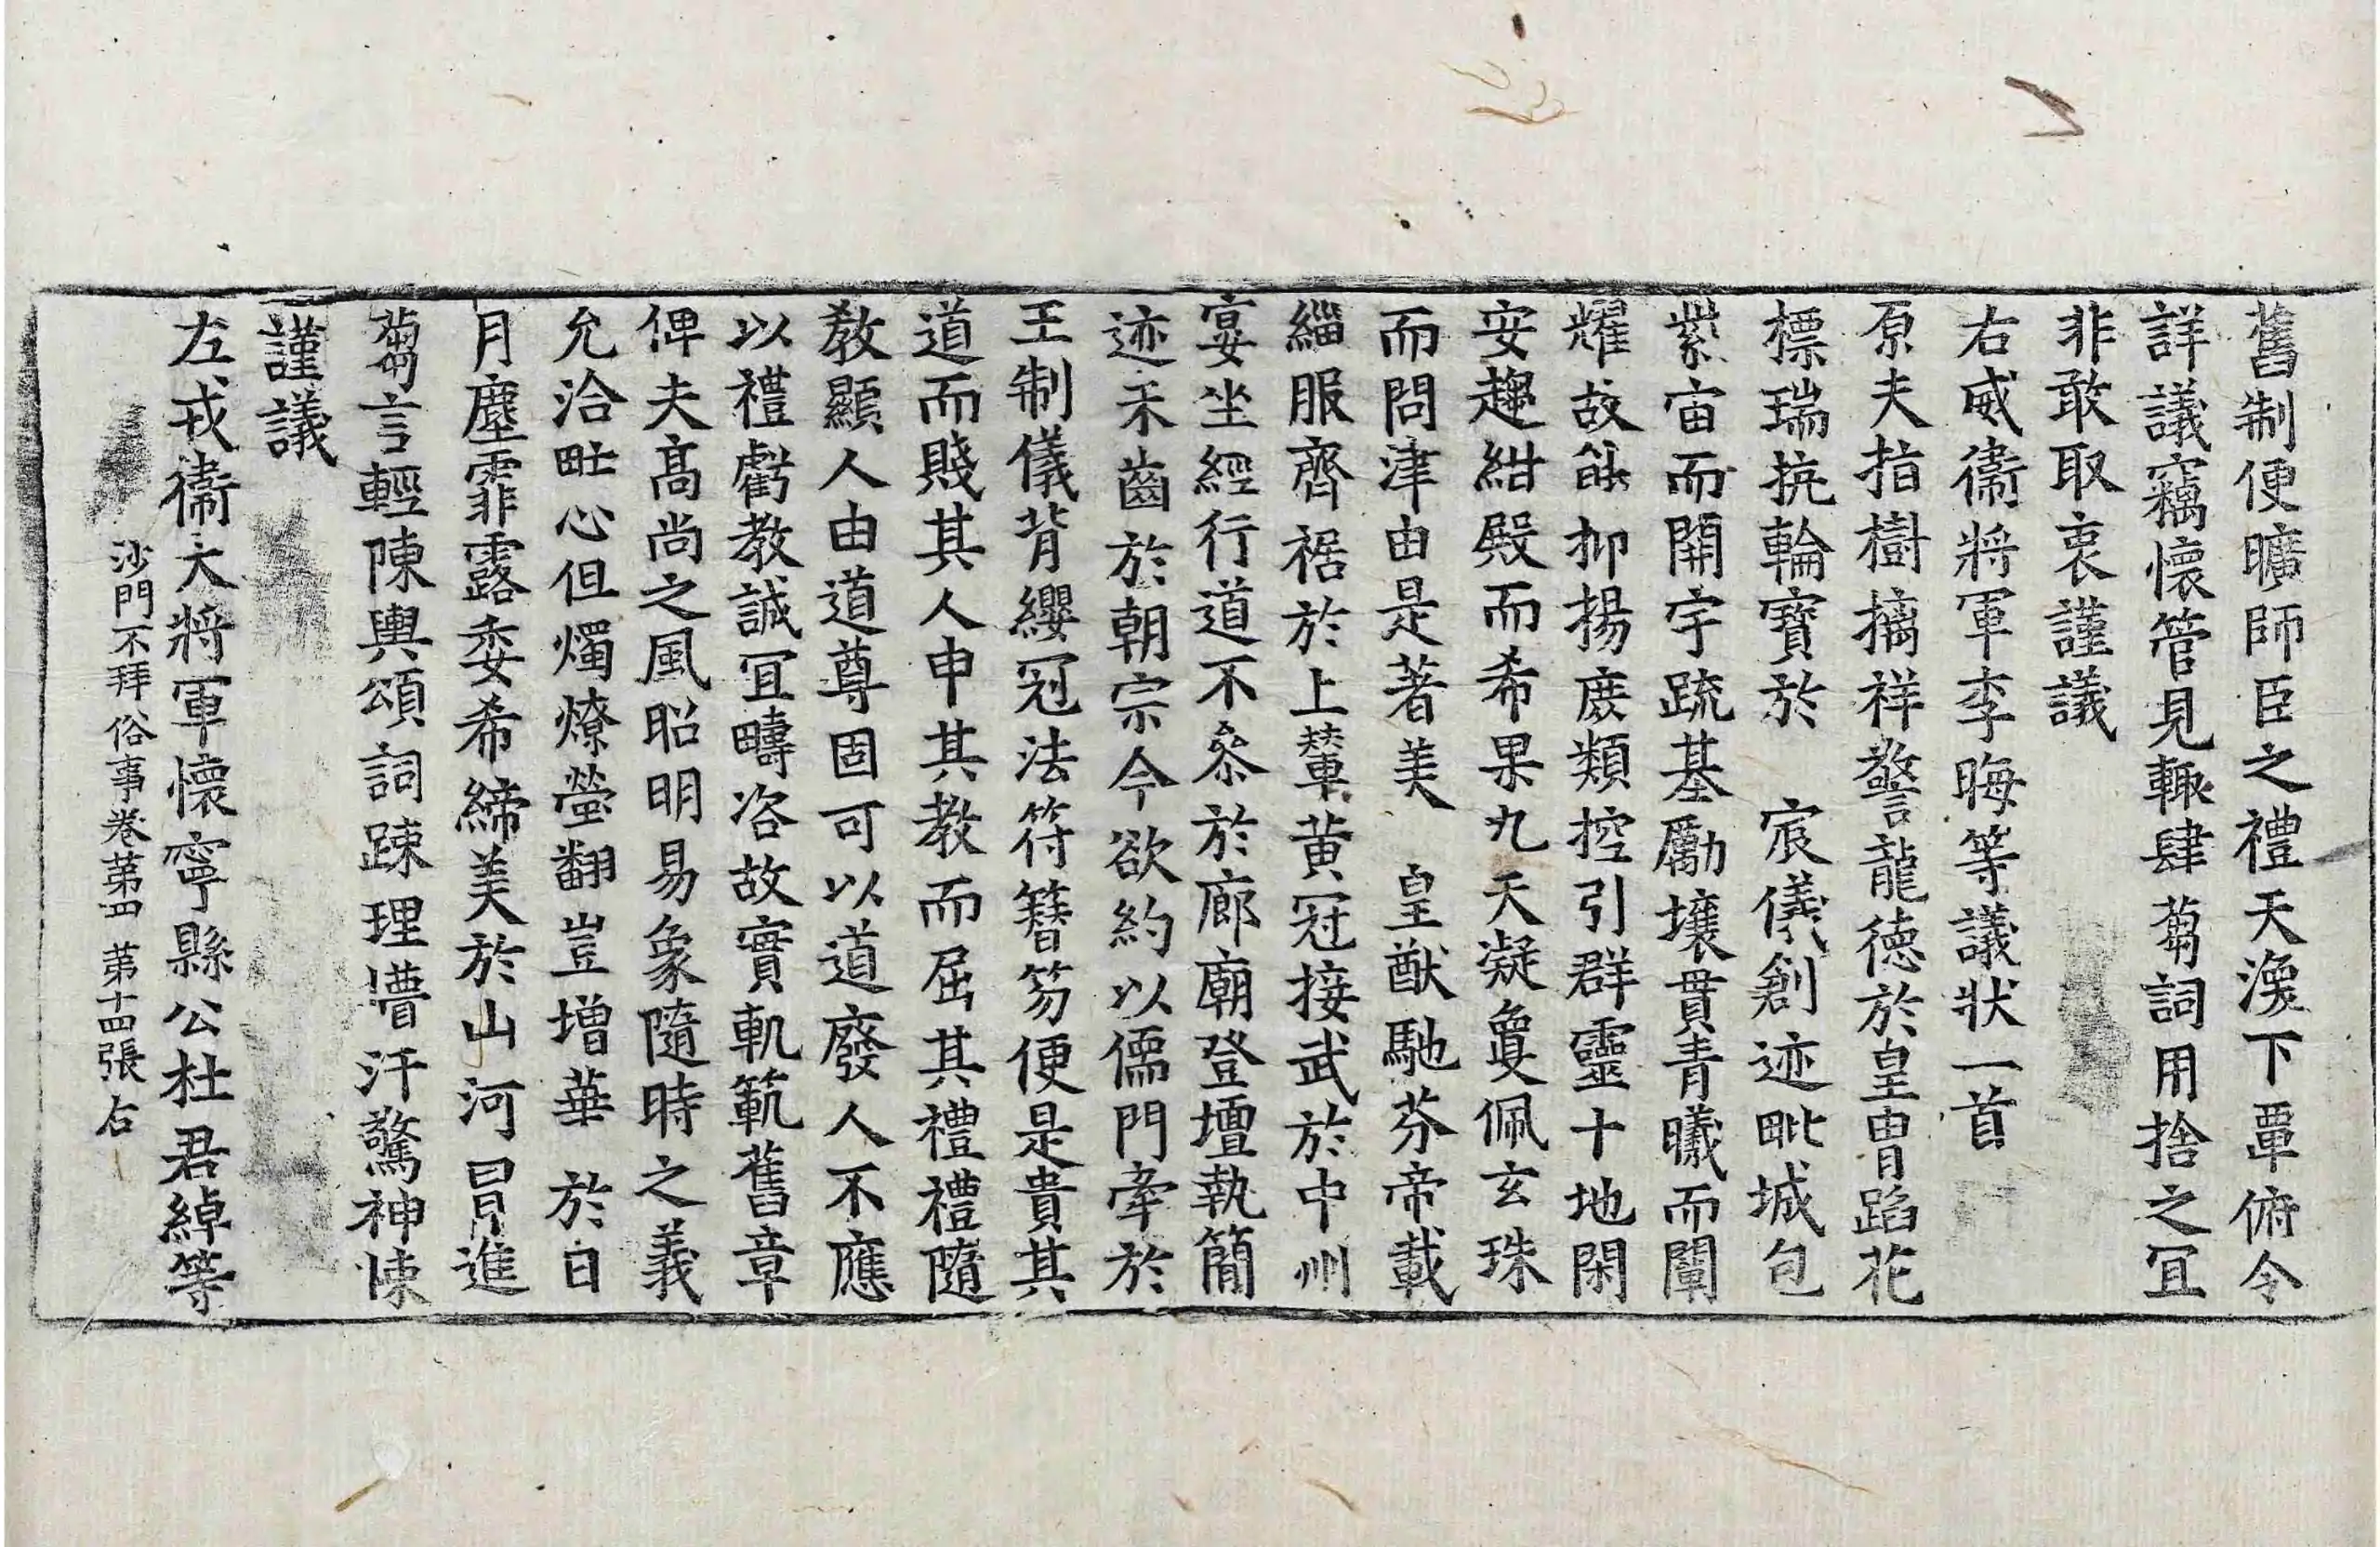 舊制便曠師臣之禮天渙下覃俯令
詳議竊懷管見輙肆蒭詞用捨之冝
非敢取衷謹議
右威衛將軍李晦等議狀一首
原夫指樹摛祥警龍德於皇胄蹈花
標瑞抗輪寶於　宸儀創迹毗城包
紫宙而開宇疏基勵壤貫青曦而闡
耀故能抑揚庶類控引群靈十地閑
安趍紺殿而希果九天凝夐佩玄珠
而問津由是著美　皇猷馳芬帝載
緇服齊裾於上輦黃冠接武於中州
宴坐經行道不叅於廊廟登壇執簡
迹未齒於朝宗今欲約以儒門牽於
王制儀背纓冠法符簪笏便是貴其
道而賤其人申其教而屈其禮禮隨
教顯人由道尊固可以道廢人不應
以禮虧教誠冝疇咨故實軌範舊章
俾夫高尚之風昭明易象隨時之義
允洽毗心但燭燎螢翻豈增華　於日
月塵霏露委希締美於山河冒進
蒭言輕陳輿頌詞踈理懵汗驚神悚
謹議
左戎衛大將軍懷寧縣公杜君綽等
沙門不拜俗事卷第四　第十四張　右